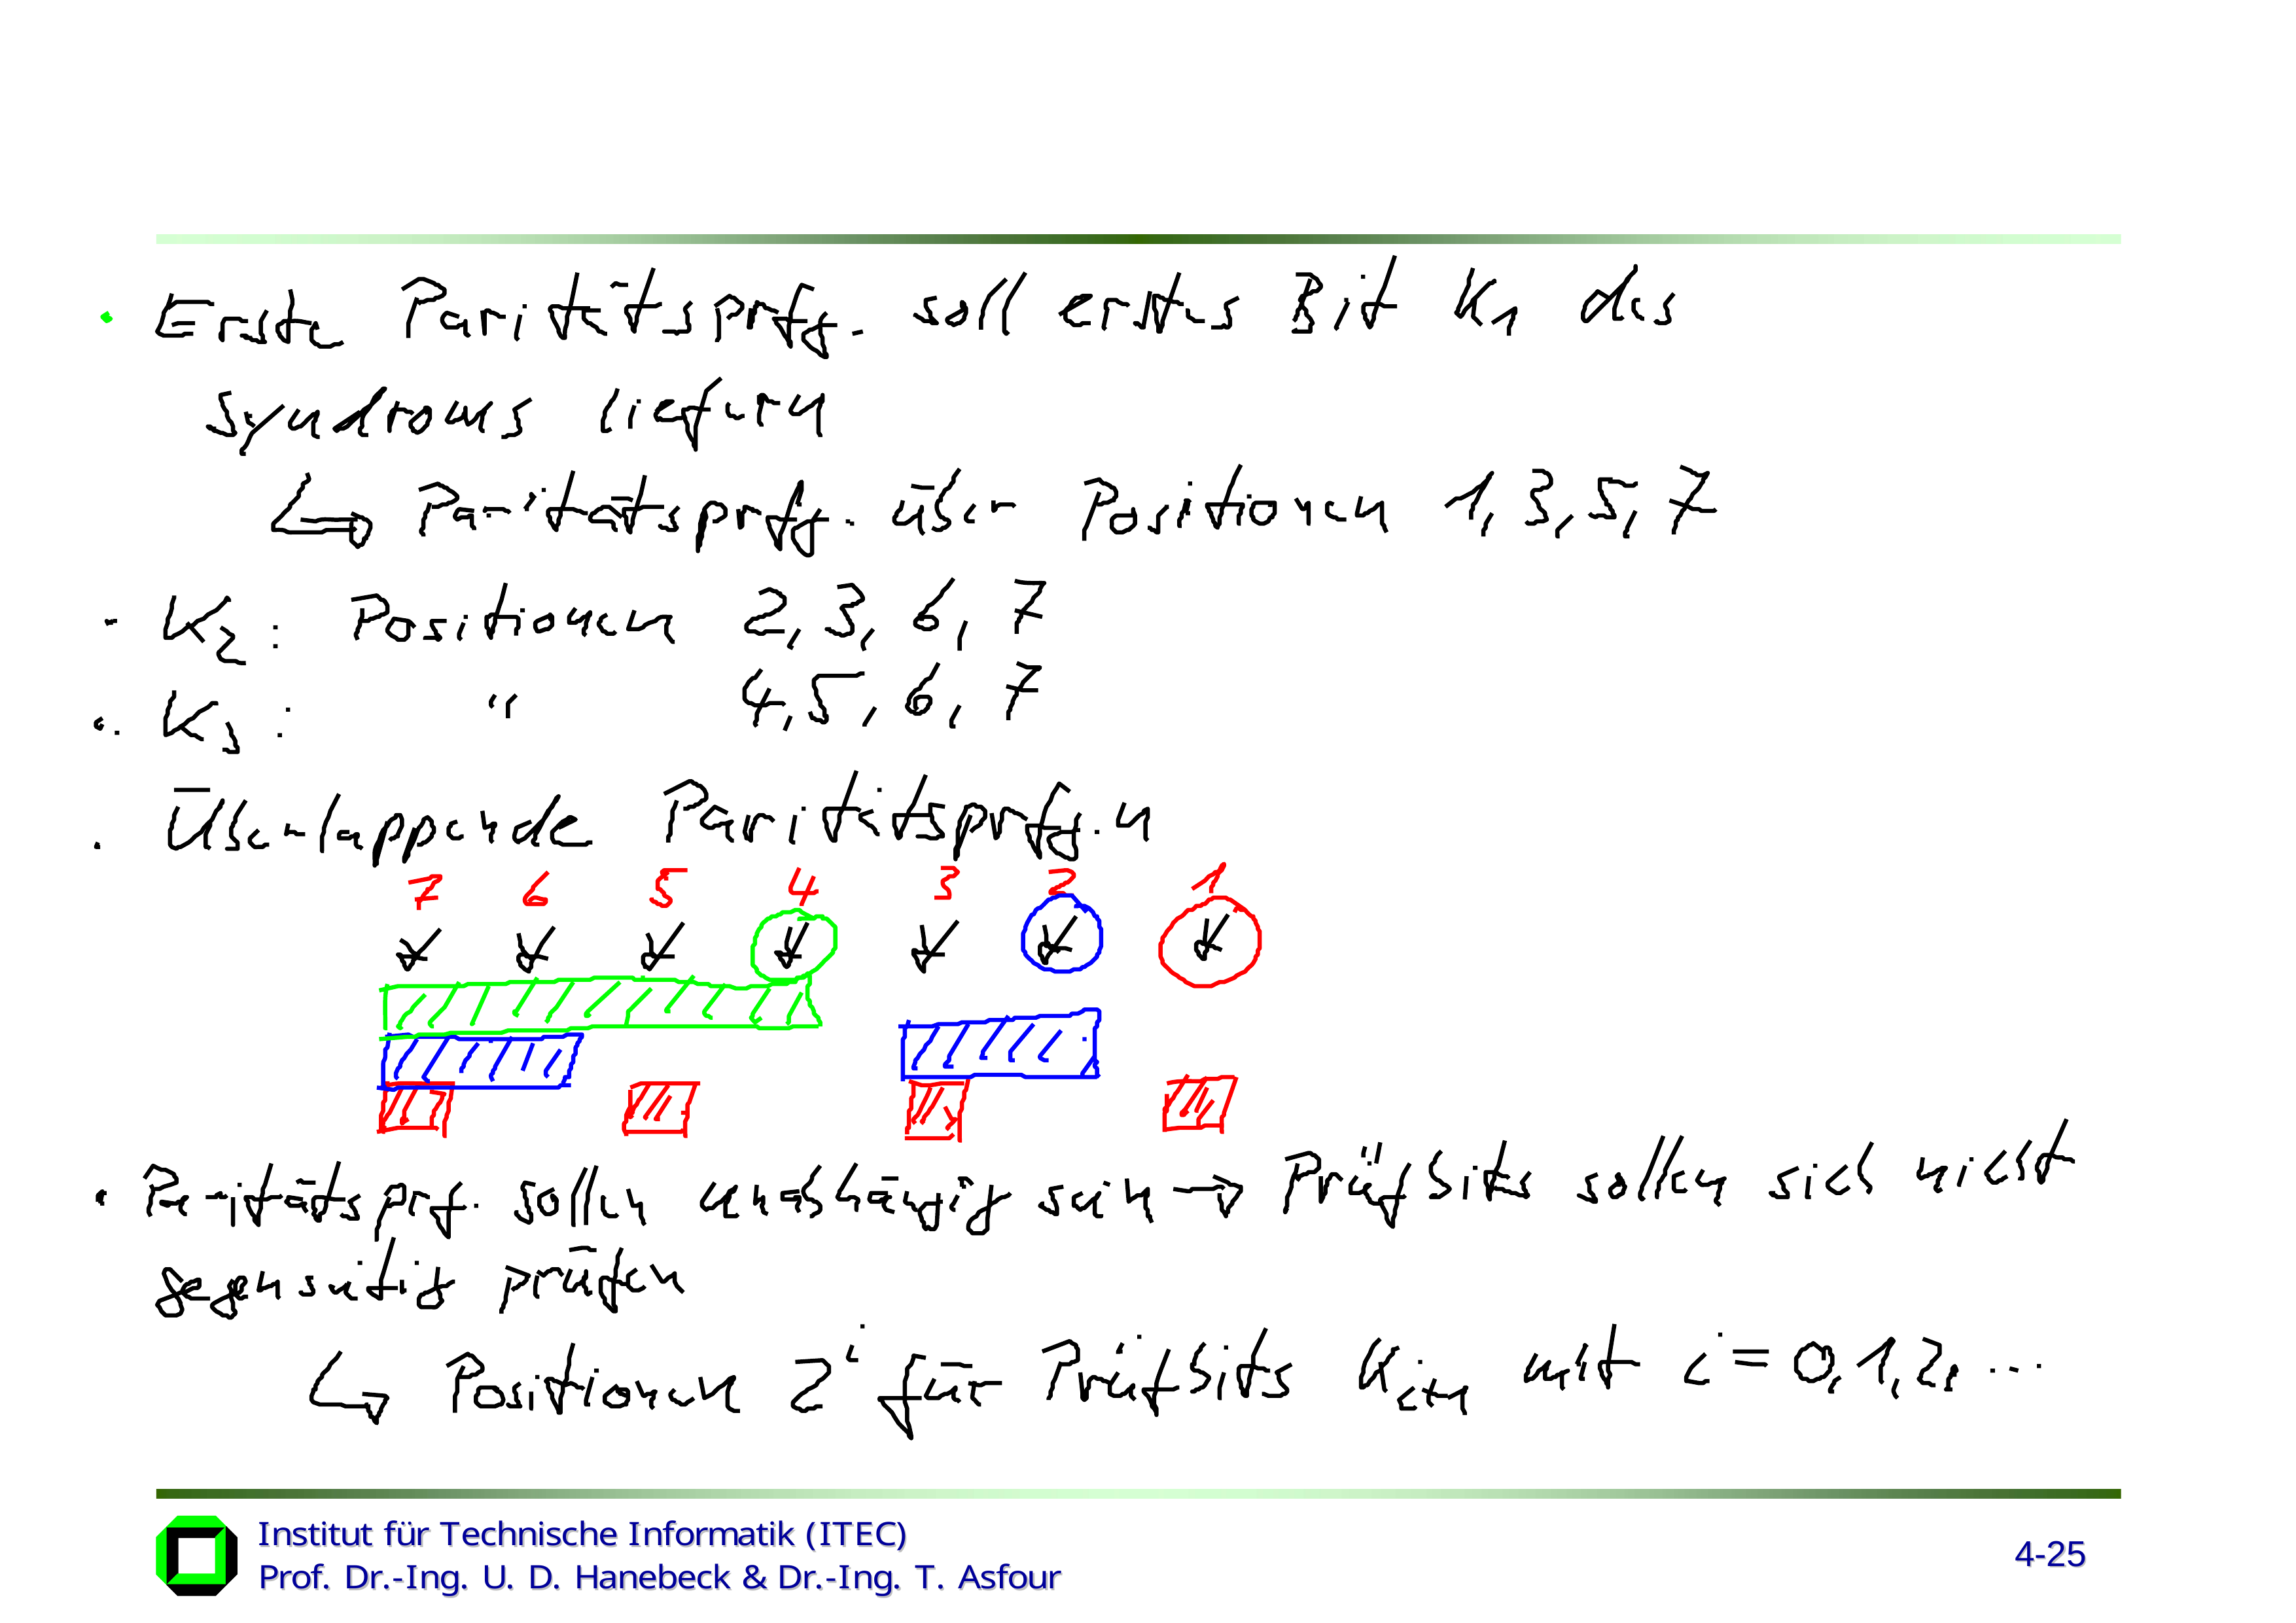 · Erste Paritätsprfg. soll erstes Bit K₁ des
Syndroms liefern
↳ Paritätsprfg. über Positionen 1, 3, 5, 7
· K₂ : Positionen 2, 3, 6, 7
· K₃ : " 4, 5, 6, 7
· Überlappende Paritätsprfg.n
7 6 5 4 3 2 1
· Paritätsprf. sollen unabhängig sein → Prüfbits sollen sich nicht
gegenseitig prüfen
↳ Positionen 2ⁱ für Prüfbits Kᵢ₊₁ mit i = 0, 1, 2, ...
Institut für Technische Informatik (ITEC)
Prof. Dr.-Ing. U. D. Hanebeck & Dr.-Ing. T. Asfour
4-25